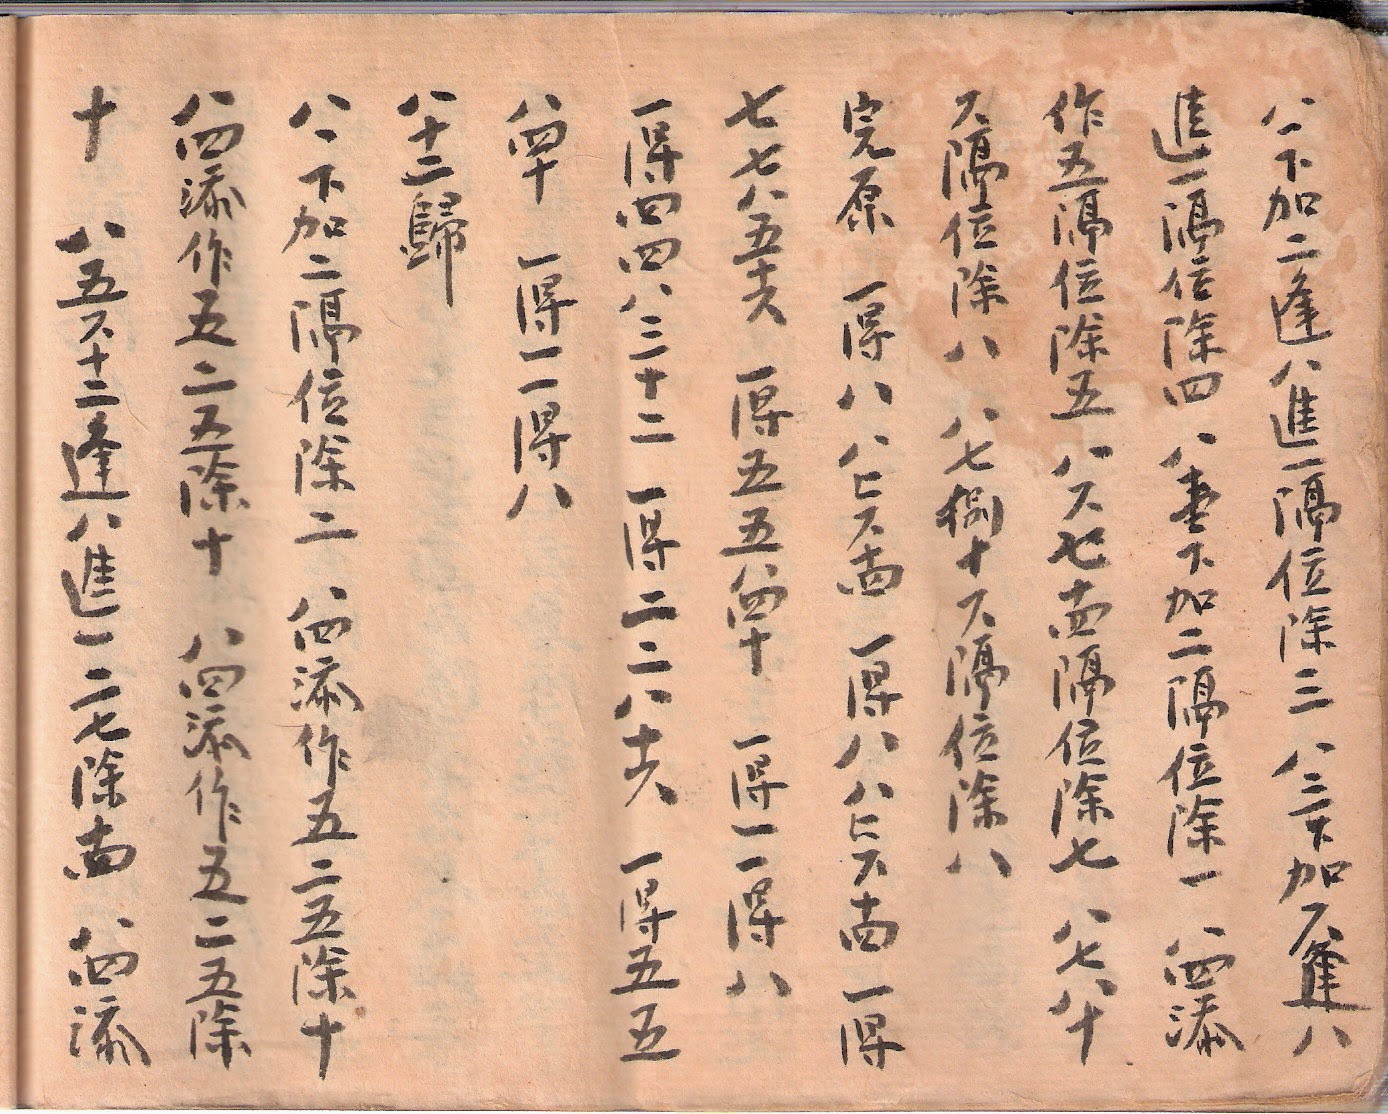 八一下加二逢八進一隔位除三 八三下加六逢八
進一隔位除四 八壹下加二隔位除一 八四添
作五隔位除五 八六七十四隔位除七 八七八十
六隔位除八 八七捌十六隔位除八
完原 一得八八七六十四 一得八八七六十四 一得
七七八五十六 一得五五八四十 一得一一得八
一得四四八三十二 一得二二八十六 一得五五
八四十 一得一一得八
八十二歸
八一下加二隔位除二 八四添作五二五除十
八四添作五二五除十 八四添作五二五除
十 八五六十二逢八進一二七除十四 八四添